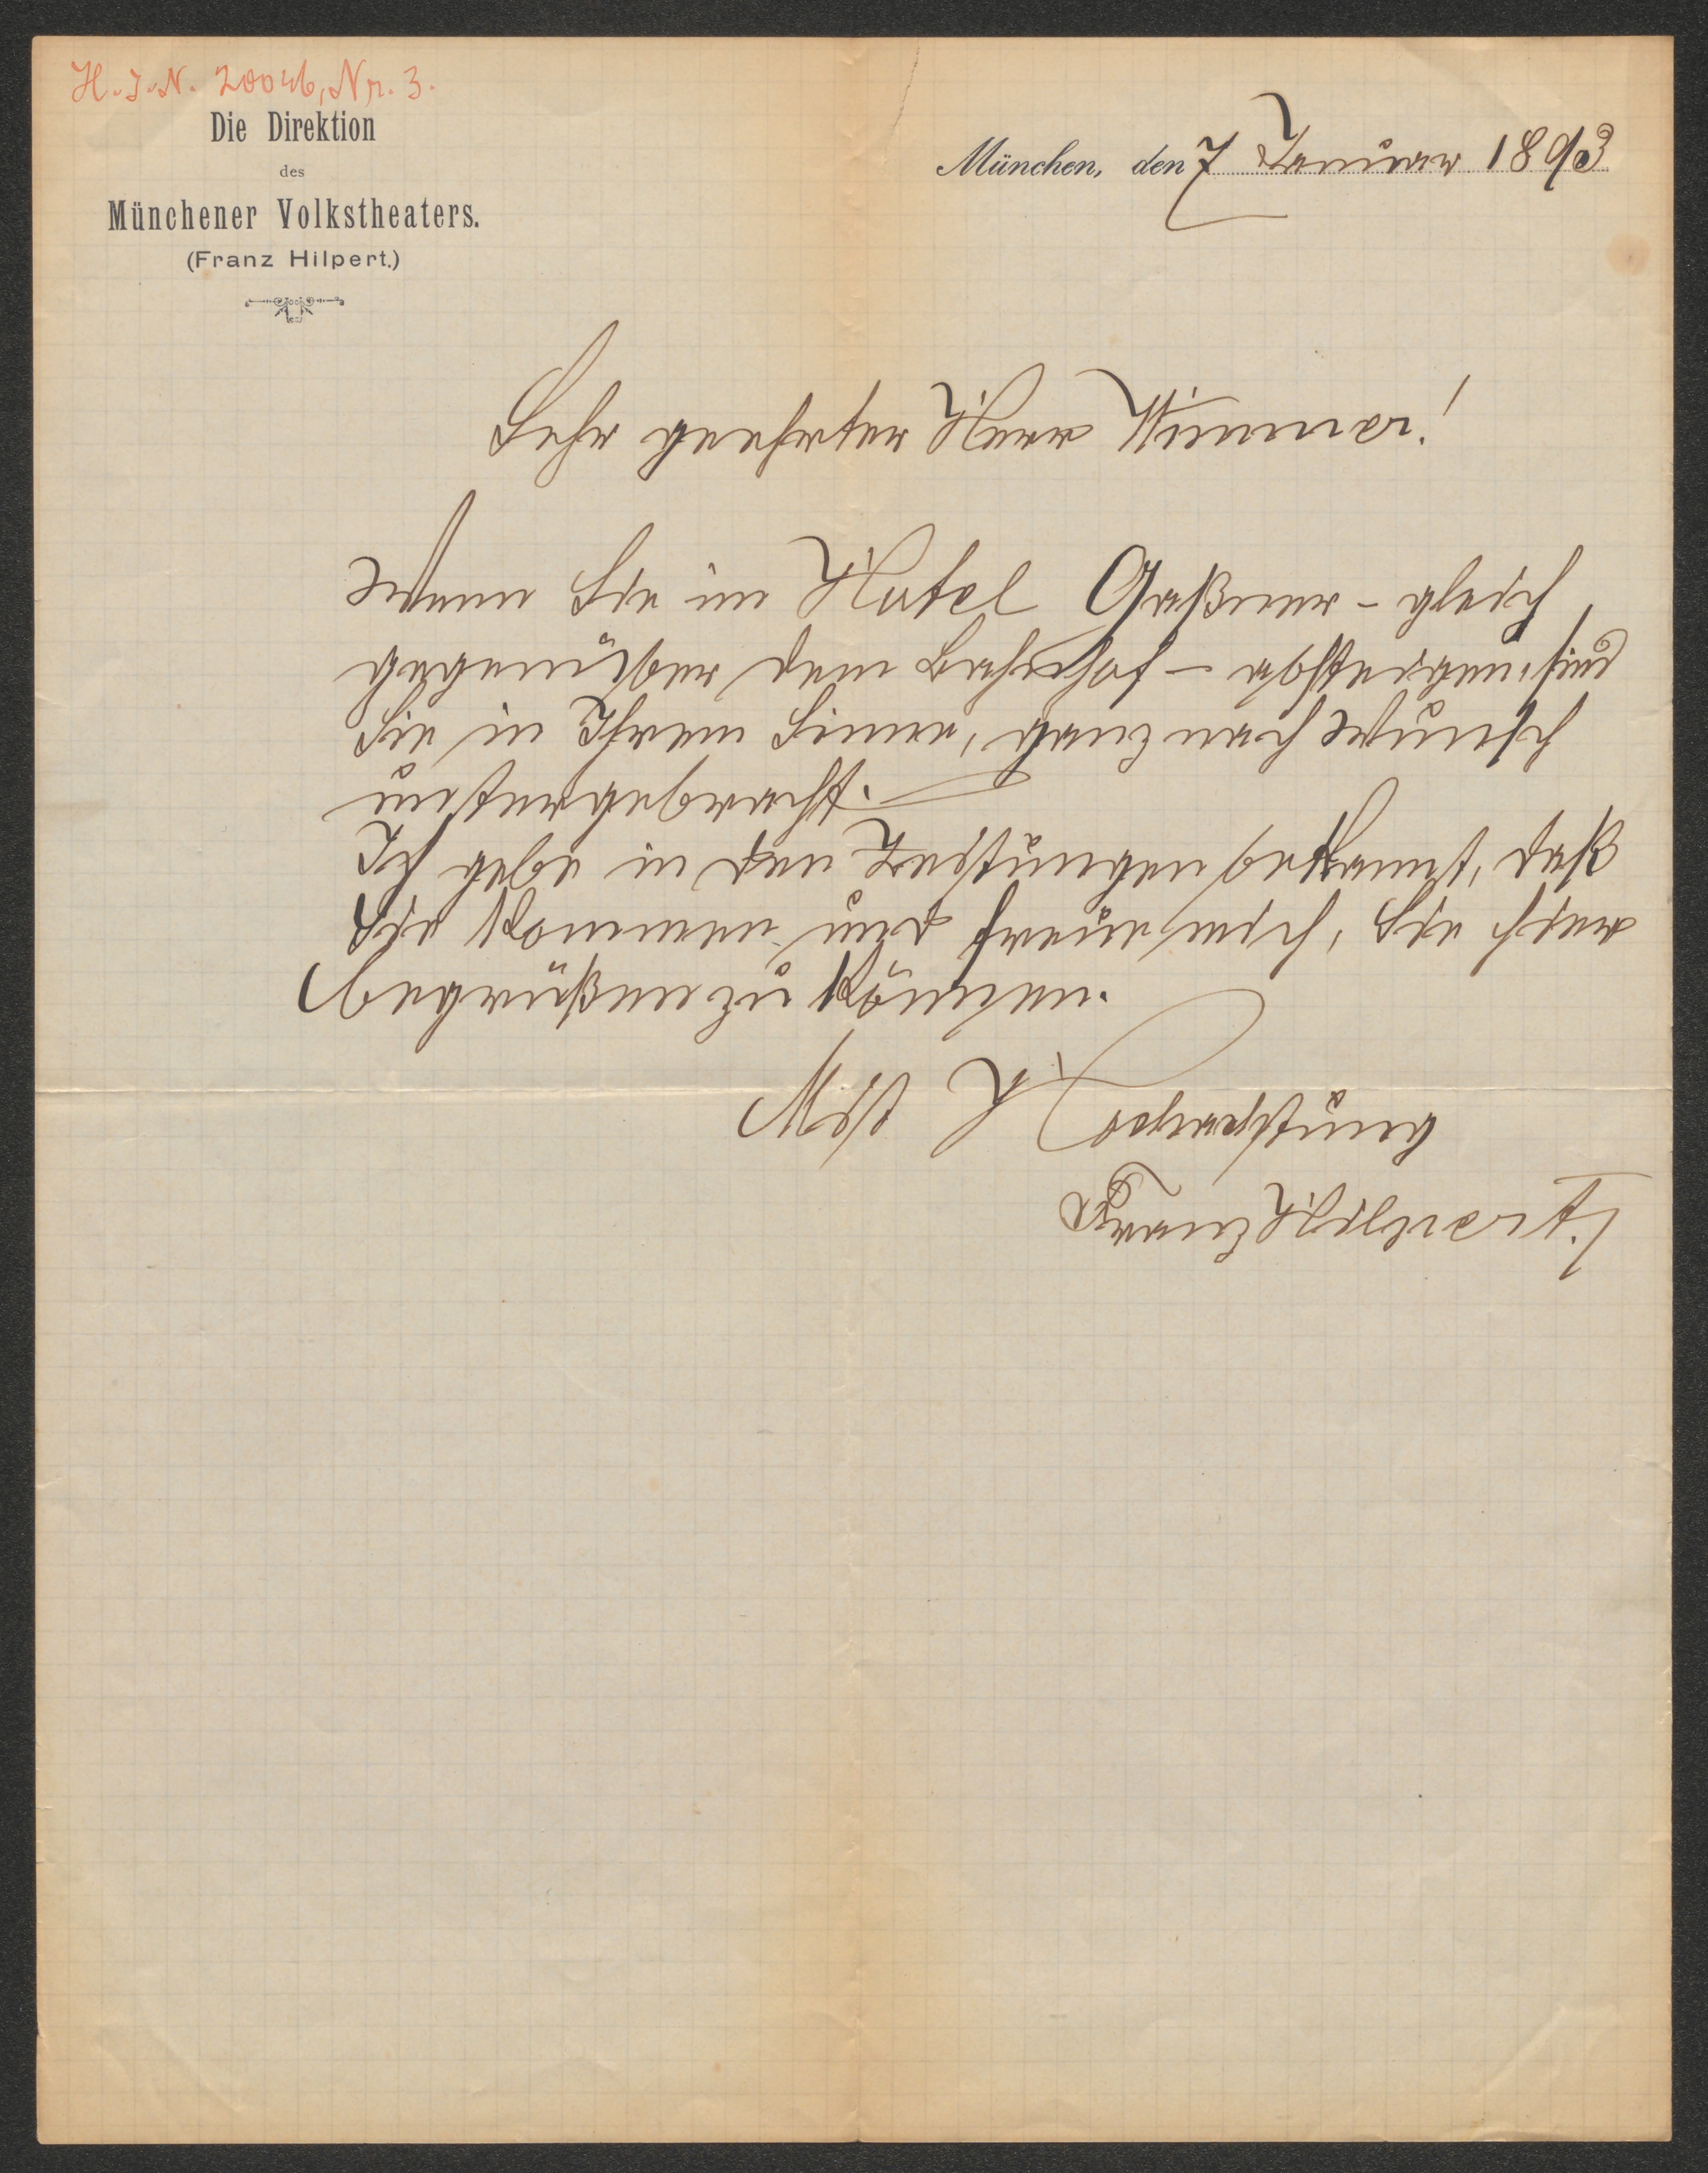 H. I. N. 20046, Nr. 3.
Die Direktion
des
Münchener Volkstheaters.
(Franz Hilpert.)
München, den 7 Januar 1893
Sehr geehrter Herr Wimmer!
Wenn Sie im Hotel Gaßner - gleich
gegenüber dem Bahnhof - absteigen, sind
Sie in Ihrem Sinne, ganz nach Wunsch
untergebracht. —
Ich gebe in den Zeitungen bekannt, daß
Sie kommen und freue mich, Sie hier
begrüßen zu können.
Mit
Hochachtung
Franz Hilpert.